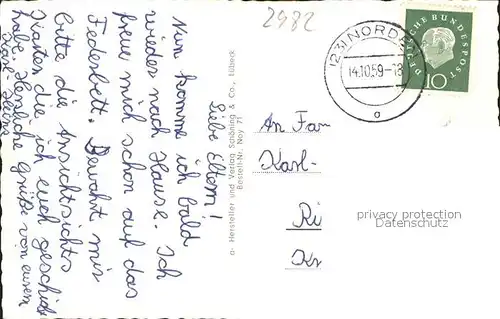 2982
Liebe Eltern!
Nun komme ich bald
wieder nach Hause. Ich
freue mich schon auf das
Federbett. Bewahrt mir
bitte die Ansichts
karten die ich euch geschickt
habe. Herzliche Grüße von eurem
Karl-Heinz
a- Hersteller und Verlag Schöning & Co., Lübeck
Bestell-Nr. Noy 71
NORD
14.10.59-18
DEUTSCHE BUNDESPOST
10
An Fam
Karl-
privacy protection
Datenschutz